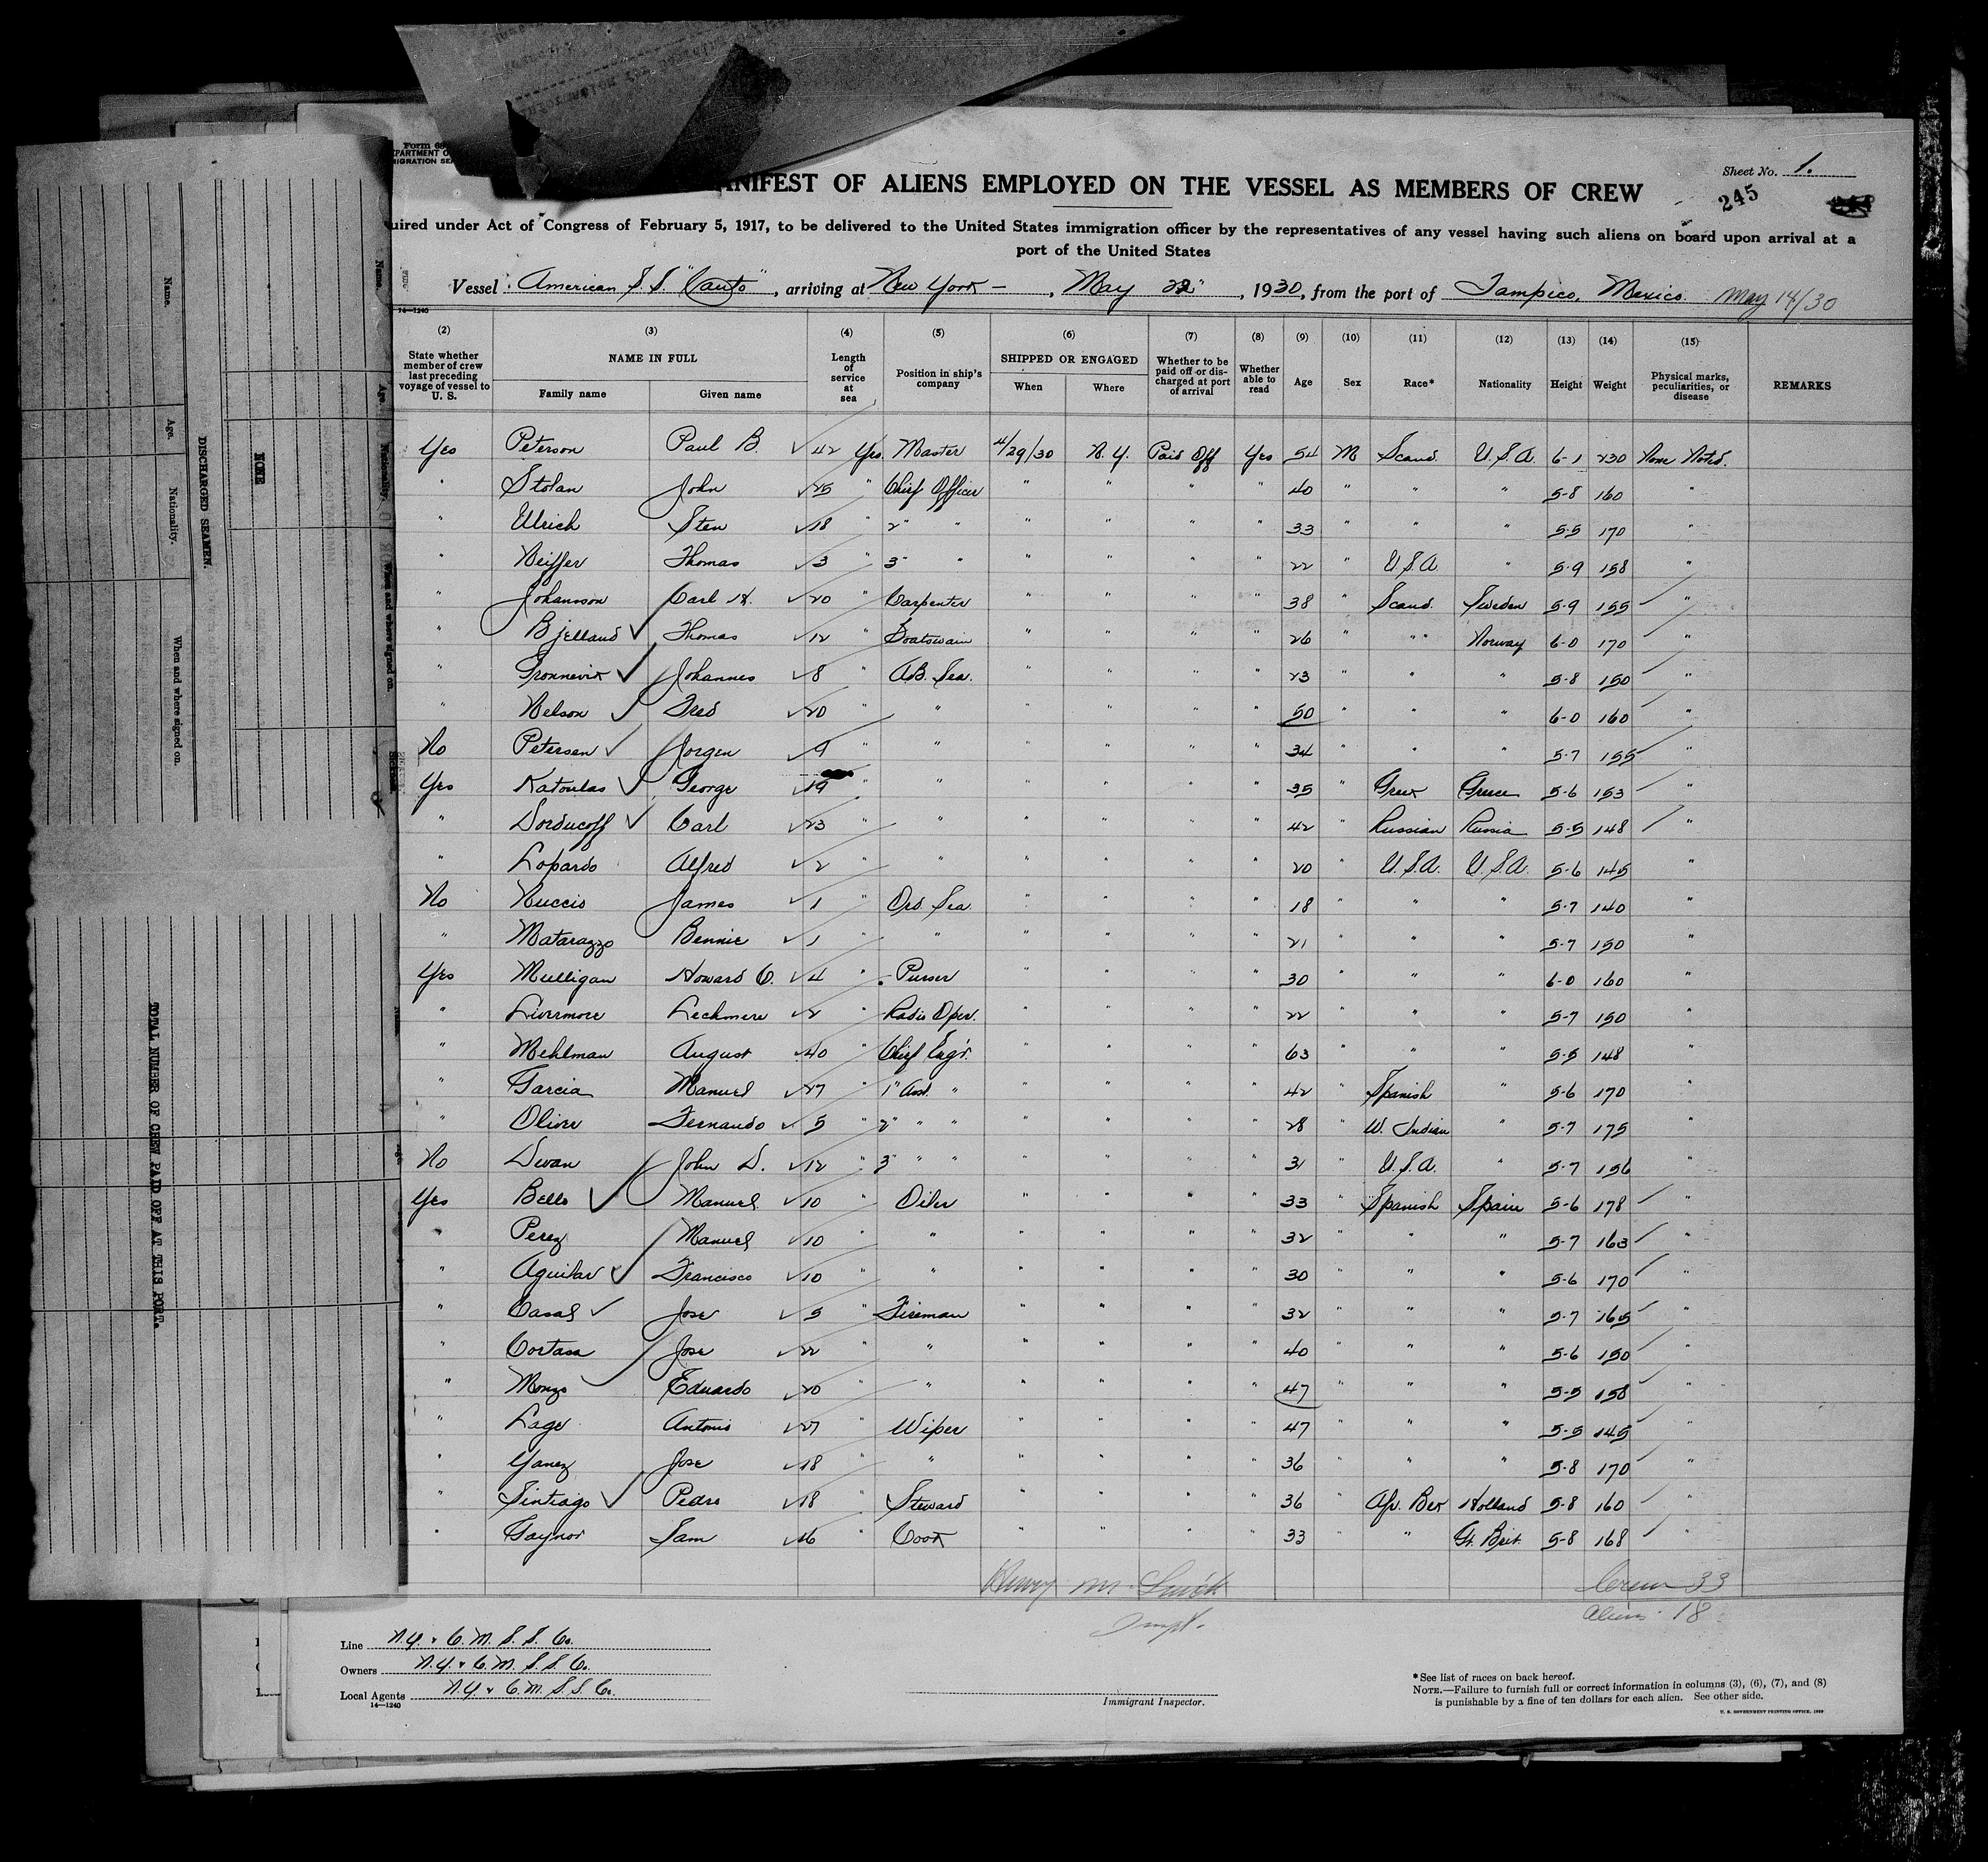 Form 68
PARTMENT O
MIGRATION SE
Sheet No. 1.
245
ANIFEST OF ALIENS EMPLOYED ON THE VESSEL AS MEMBERS OF CREW
uired under Act of Congress of February 5, 1917, to be delivered to the United States immigration officer by the representatives of any vessel having such aliens on board upon arrival at a
port of the United States
Vessel American S.S. "Cauto", arriving at New York -, May 22", 1930, from the port of Tampico, Mexico. May 14/30
14—1240
(2) (3) (4) (5) (6) (7) (8) (9) (10) (11) (12) (13) (14) (15)
State whether member of crew last preceding voyage of vessel to U. S. NAME IN FULL Family name Given name Length of service at sea Position in ship's company SHIPPED OR ENGAGED When Where Whether to be paid off or discharged at port of arrival Whether able to read Age Sex Race* Nationality Height Weight Physical marks, peculiarities, or disease REMARKS
Yes Peterson Paul B. 42 Yrs. Master 4/29/30 N.Y. Paid Off Yes 54 M Scand. U.S.A. 6-1 230 None Noted.
" Stolan John 25 " Chief Officer " " " " 40 " " " 5-8 160 "
" Ulrich Sten 18 " 2" " " " " " 33 " " " 5-5 170 "
" Neiffer Thomas 3 " 3" " " " " " 22 " U.S.A. " 5-9 158 "
" Johansson Carl H. 20 " Carpenter " " " " 38 " Scand. Sweden 5-9 155 "
" Bjelland Thomas 12 " Boatswain " " " " 26 " " " Norway 6-0 170 "
" Gronnevik Johannes 8 " A.B. Sea. " " " " 23 " " " 5-8 150 "
" Nelson Fred 20 " " " " " " 50 " " " 6-0 160 "
No Petersen Jorgen 9 " " " " " " 34 " " " 5-7 155 "
Yes Katoulas George 19 " " " " " " 35 " Greek Greece 5-6 153 "
" Dorducoff Carl 23 " " " " " " 42 " Russian Russia 5-5 148 "
" Lopardo Alfred 2 " " " " " " 20 " U.S.A. U.S.A. 5-6 145 "
No Nuccio James 1 " Ord. Sea " " " " 18 " " " 5-7 140 "
" Matarazzo Bennie 1 " " " " " " 21 " " " 5-7 150 "
Yes Mulligan Howard C. 4 " Purser " " " " 30 " " " 6-0 160 "
" Livermore Lechmere 2 " Radio Oper. " " " " 22 " " " 5-7 150 "
" Mehlman August 40 " Chief Eng'r. " " " " 63 " " " 5-5 148 "
" Garcia Manuel 27 " 1" Asst. " " " " " 42 " Spanish " 5-6 170 "
" Oliver Fernando 5 " 2" " " " " " " 28 " W. Indian " 5-7 175 "
No Dwan John D. 12 " 3" " " " " " " 31 " U.S.A. " 5-7 156 "
Yes Bello Manuel 10 " Oiler " " " " 33 " Spanish Spain 5-6 178 "
" Perez Manuel 10 " " " " " " 32 " " " 5-7 163 "
" Aguilar Francisco 10 " " " " " " 30 " " " 5-6 170 "
" Casal Jose 5 " Fireman " " " " 32 " " " 5-7 165 "
" Cortasa Jose 22 " " " " " " 40 " " " 5-6 150 "
" Monzo Eduardo 20 " " " " " " 47 " " " 5-5 158 "
" Lage Antonio 27 " Wiper " " " " 47 " " " 5-5 145 "
" Yanez Jose 18 " " " " " " 36 " " " 5-8 170 "
" Sintiago Pedro 18 " Steward " " " " 36 " Afr. Blk Holland 5-8 160 "
" Gaynor Sam 16 " Cook " " " " 33 " " Gt. Brit. 5-8 168 "
Crew 33
Aliens 18
Line N.Y. & C.M.S.S. Co.
Owners N.Y. & C.M.S.S. Co.
Local Agents N.Y. & C.M.S.S. Co.
14—1240
Immigrant Inspector.
*See list of races on back hereof.
NOTE.—Failure to furnish full or correct information in columns (3), (6), (7), and (8)
is punishable by a fine of ten dollars for each alien. See other side.
U. S. GOVERNMENT PRINTING OFFICE, 1929
Name. Age. Nationality. When and where signed on.
DISCHARGED SEAMEN.
NONE
Name. Age. Nationality. When and where signed on.
TOTAL NUMBER OF CREW PAID OFF AT THIS PORT.